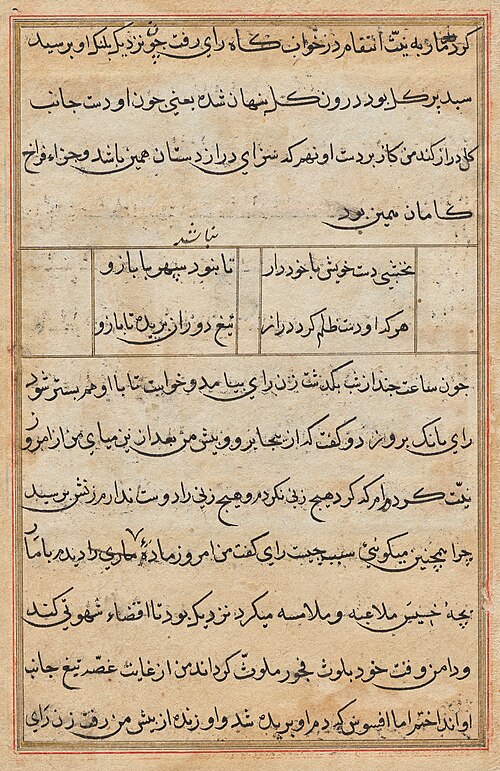 کرد مار به نیت انتقام در خوابگاه رای رفت چون نزدیک پلنک او برسید
سبد پر کل بود درون کل پنهان شده یعنی چون او دست جانب
کل دراز کند من کاز بر دست او نهم که سزای دراز دستان همین باشد و جزاء فراخ
کامان همین بود
نباشد
نخشبی دست خویش با خود دار تا بنود سپهر با بازو
هر که او دست ظلم کرد دراز تیغ دوران برید تا بازو
چون ساعت چند از شب بکذشت زن رای بیامد و خواست تا با او هم بستر شود
رای بانک برو زد و گفت که از ینجا برو و پیش من بعد ازین میای من از امروز
نیت کرده‌ام که کرد هیچ زنی نکردم و هیچ زنی را دوست ندارم زنش پرسید
چرا همچنین میکوئی سبب چیست رای گفت من امروز مادۀ ماری را دیدم با مار
بچۀ خسیس ملاعبه و ملامسه میکرد نزدیک بود تا اقضاء شهوتی کند
و دامن وقت خود بلوث فجور ملوث کرداند من از غایت غصه تیغ جانب
او انداختم اما افسوس که دم او بریده شد و او زنده از پیش من رفت زن رای